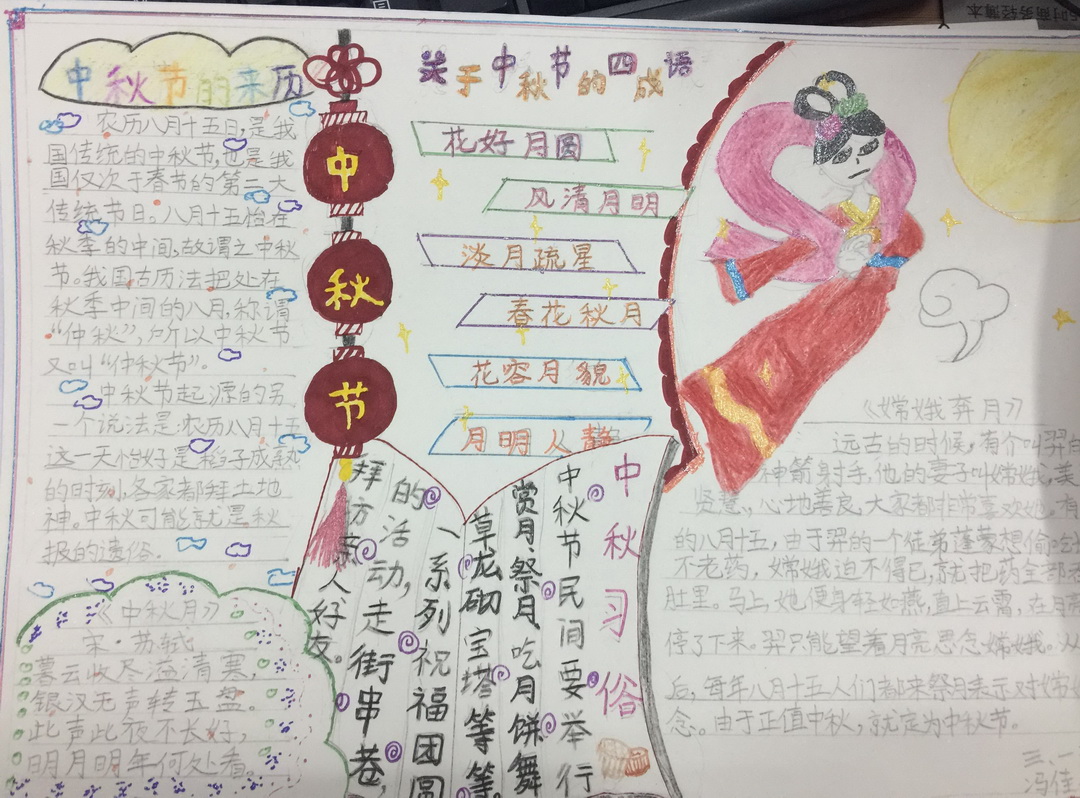 中秋节的来历
农历八月十五日,是我
国传统的中秋节,也是我
国仅次于春节的第二大
传统节日。八月十五恰在
秋季的中间,故谓之中秋
节。我国古历法把处在
秋季中间的八月,称谓
“仲秋”,所以中秋节
又叫“仲秋节”。
中秋节起源的另
一个说法是:农历八月十五
这一天恰好是稻子成熟
的时刻,各家都拜土地
神。中秋可能就是秋
报的遗俗.
《中秋月》
宋·苏轼
暮云收尽溢清寒,
银汉无声转玉盘。
此声此夜不长好,
明月明年何处看。
中
秋
节
关于中秋节的四成语
花好月圆
风清月明
淡月疏星
春花秋月
花容月貌
月明人静
中秋习俗
中秋节民间要举行
赏月、祭月、吃月饼舞
草龙砌宝塔等等
一系列祝福团圆
的活动,走街串巷,
拜访亲人好友。
《嫦娥奔月》
远古的时候,有个叫羿
神箭射手,他的妻子叫嫦娥,美
贤慧,心地善良,大家都非常喜欢她,有
的八月十五,由于羿的一个徒弟蓬蒙想偷
不老药,嫦娥迫不得已,就把药全部
肚里。马上,她便身轻如燕,直上云霄,在月
停了下来。羿只能望着月亮思念嫦娥。从
后,每年八月十五人们都祭月表示对嫦
念。由于正值中秋,就定为中秋节。
三、一
冯佳